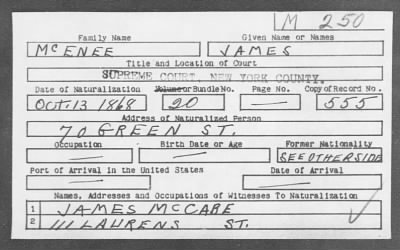 M 250
Family Name Given Name or Names
McENEE JAMES
Title and Location of Court
SUPREME COURT, NEW YORK COUNTY.
Date of Naturalization Volume or Bundle No. Page No. Copy of Record No.
OCT. 13 1868 20 — 555
Address of Naturalized Person
70 GREEN ST.
Occupation Birth Date or Age Former Nationality
— — SEE OTHERSIDE
Port of Arrival in the United States Date of Arrival
— —
Names, Addresses and Occupations of Witnesses To Naturalization
1 JAMES McCABE
2 111 LAURENS ST.